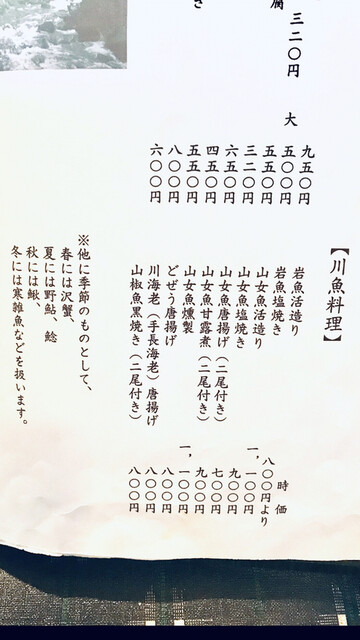 九五〇円
腐 三二〇円 大 五〇〇円
五五〇円
三二〇円
六五〇円
四五〇円
き 五五〇円
八〇〇円
六〇〇円
【川魚料理】
岩魚活造り 時価
岩魚塩焼き 八〇〇円より
山女魚活造り 一、一〇〇円
山女魚塩焼き 九〇〇円
山女魚唐揚げ(二尾付き) 七〇〇円
山女魚甘露煮(二尾付き) 九〇〇円
山女魚燻製 一、一〇〇円
どぜう唐揚げ 八〇〇円
川海老(手長海老)唐揚げ 八〇〇円
山椒魚黒焼き(二尾付き) 八〇〇円
※他に季節のものとして、
春には沢蟹、
夏には野鮎、鯰
秋には鰍、
冬には寒雑魚などを扱います。